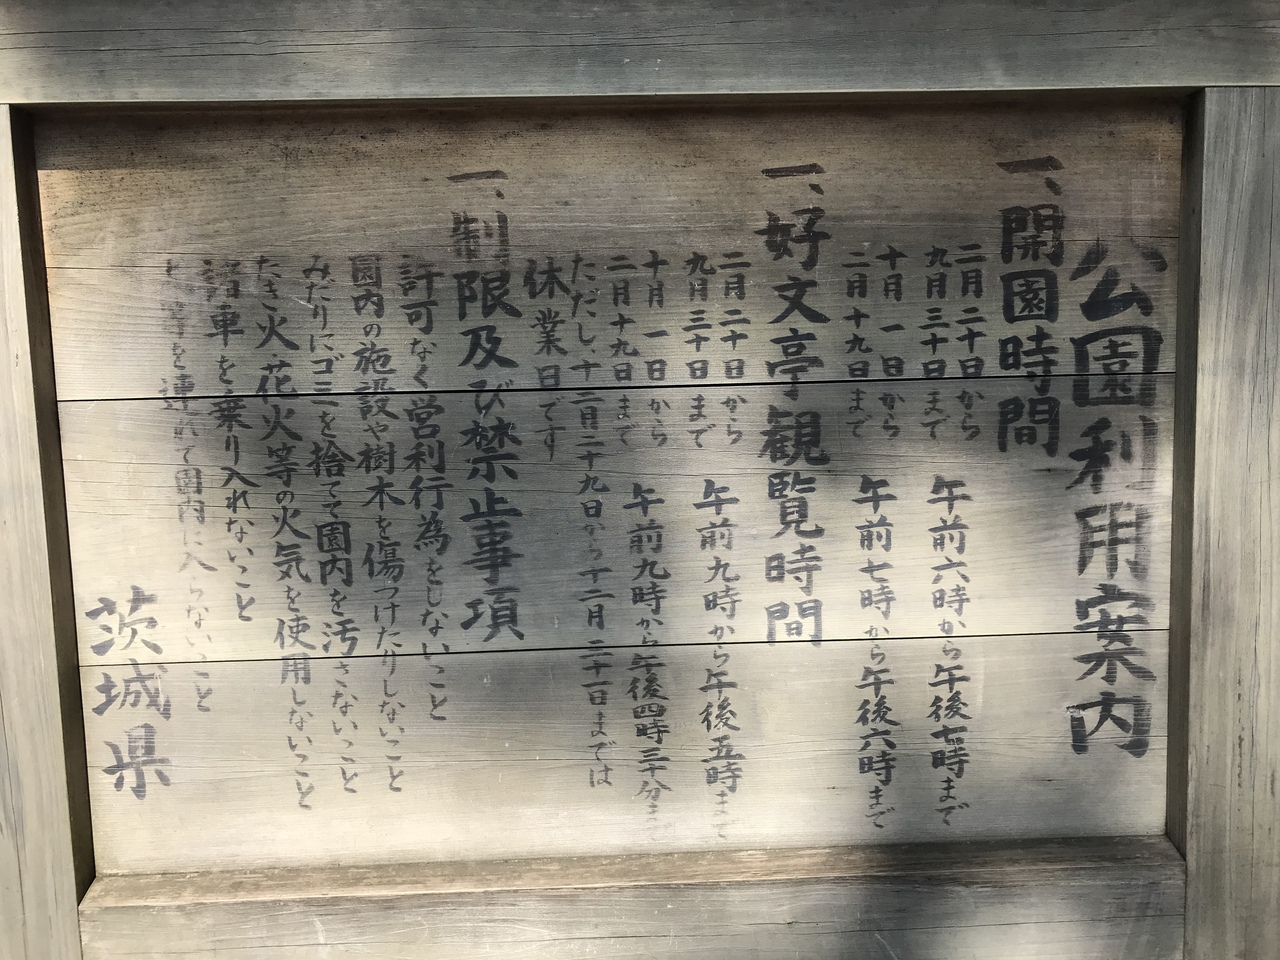 公園利用案内
一、開園時間
二月二十日から
九月三十日まで
午前六時から午後七時まで
十月一日から
二月十九日まで
午前七時から午後六時まで
一、好文亭観覧時間
二月二十日から
九月三十日まで
午前九時から午後五時まで
十月一日から
二月十九日まで
午前九時から午後四時三十分まで
ただし、十二月二十九日から十二月三十一日までは
休業日です
一、制限及び禁止事項
許可なく営利行為をしないこと
園内の施設や樹木を傷つけたりしないこと
みだりにゴミを捨てて園内を汚さないこと
たき火、花火等の火気を使用しないこと
諸車を乗り入れないこと
等を連れて園内に入らないこと
茨城県